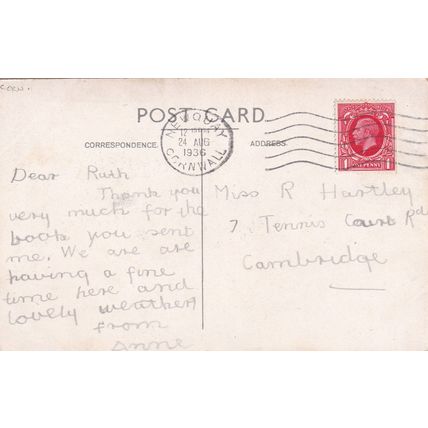 CORN.
POST CARD.
CORRESPONDENCE.
ADDRESS.
NEWQUAY
12
24 AUG
1936
CORNWALL
1 ONE PENNY 1
Dear Ruth
Thank you
very much for the
book you sent
me. We are are
having a fine
time here and
lovely weather
from
Anne
Miss R Hartley
7, Tennis Court Rd
Cambridge